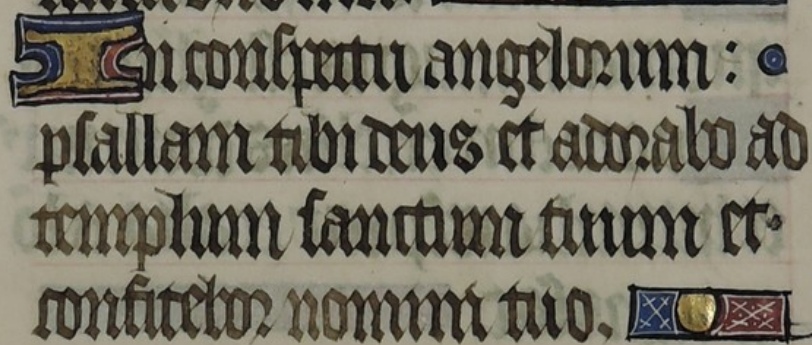 In conspectu angelorum :
psallam tibi deus et adorabo ad
templum sanctum tuum et
confitebor nomini tuo.